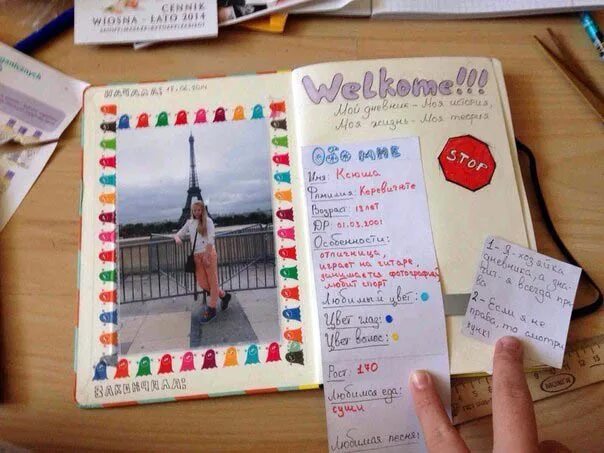 CENNIK
WIOSNA - LATO 2014
НАЧАЛА: 17.06.2014
ЗАКОНЧИЛА:
Welkome!!!
Мой дневник - Моя история,
Моя жизнь - Моя теория
STOP
Обо мне
Имя: Ксюша
Фамилия: Каревичюте
Возраст: 13 лет
ДР: 01.03.2001
Особенности:
отличница,
играет на гитаре,
занимается фотографией,
любит спорт
Любимый цвет:
Цвет глаз:
Цвет волос:
Рост: 170
Любимая еда:
суши
Любимая песня:
1- Я - хозяйка
дневника, а зна-
чит я всегда пра-
ва
2- Если я не
права, то смотри
пункт